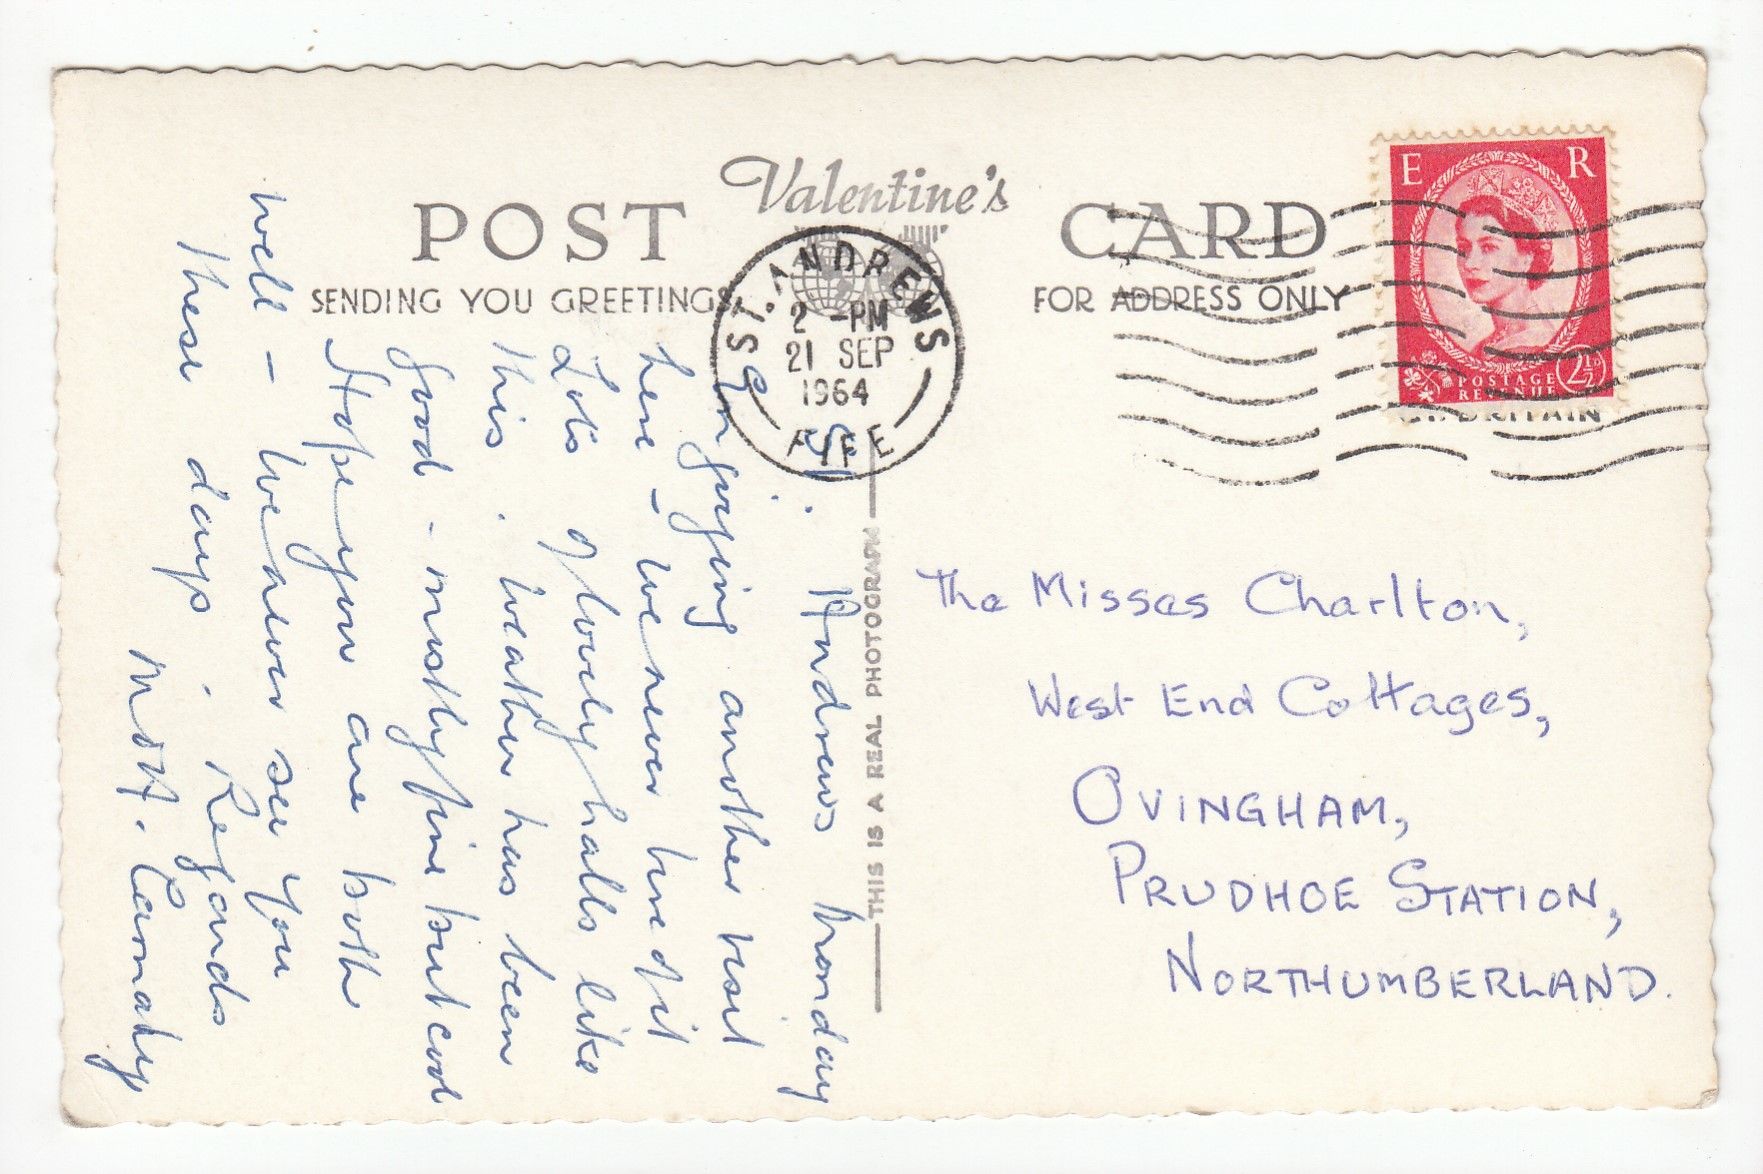 POST
Valentine's
CARD
SENDING YOU GREETINGS
FOR ADDRESS ONLY
ST. ANDREWS
2 -PM
21 SEP
1964
FIFE
E R
POSTAGE
REVENUE
2½D
BRITAIN
THIS IS A REAL PHOTOGRAPH
St. Andrews Monday
Enjoying another visit
here - we never tire of it
Lots of lovely halls like
this. Weather has been
good - mostly fine but cool
Hope you are both
well - We never see you
these days. Regards
The Misses Charlton,
West End Cottages,
OVINGHAM,
PRUDHOE STATION,
NORTHUMBERLAND.